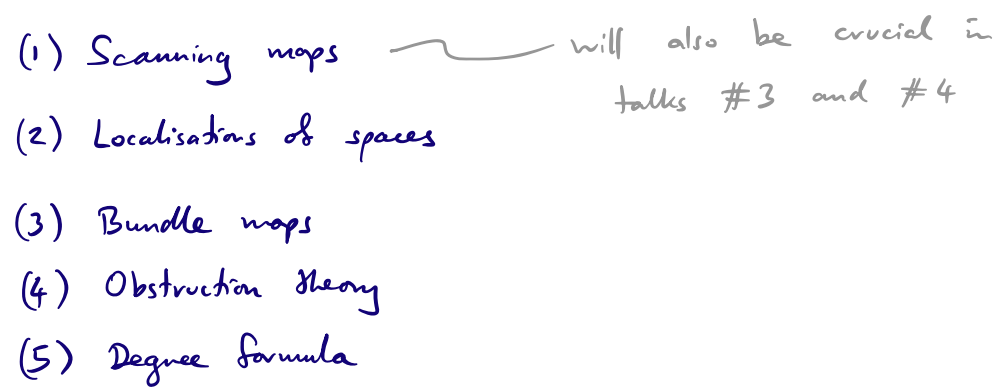 (1) Scanning maps will also be crucial in
talks #3 and #4
(2) Localisations of spaces
(3) Bundle maps
(4) Obstruction theory
(5) Degree formula